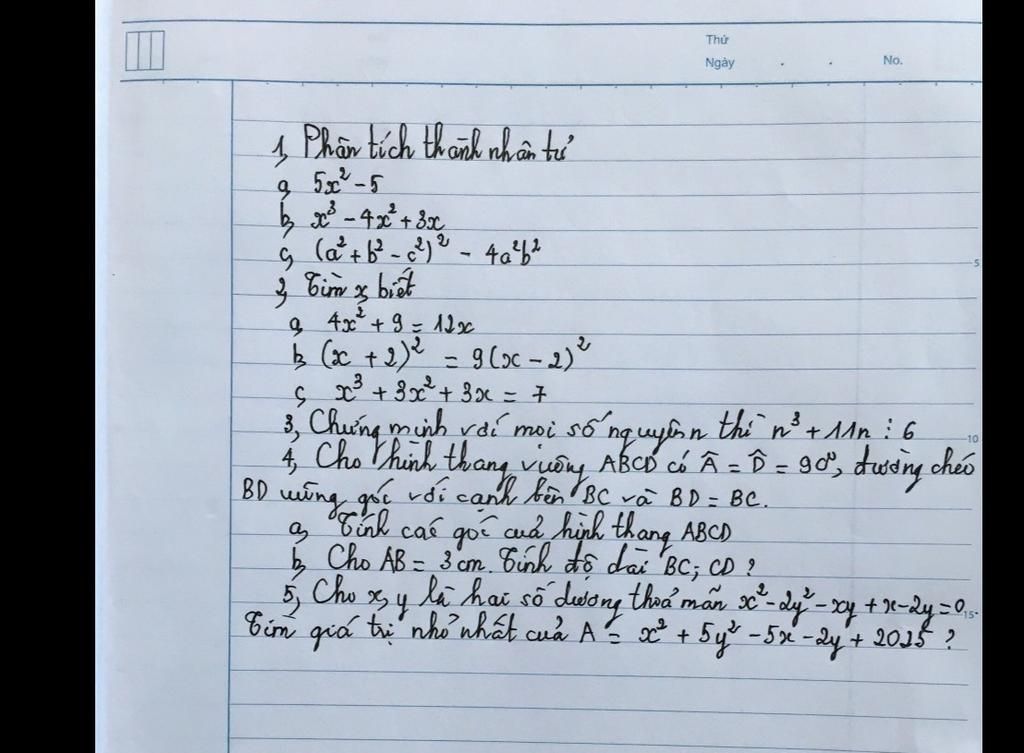 Thứ
Ngày . . No.
1, Phân tích thành nhân tử
a, 5x² - 5
b, x³ - 4x² + 3x
c, (a² + b² - c²)² - 4a²b²
5
2, Tìm x, biết
a, 4x² + 9 = 12x
b, (x + 2)² = 9(x - 2)²
c, x³ + 3x² + 3x = 7
3, Chứng minh với mọi số nguyên n thì n³ + 11n ⋮ 6
10
4, Cho hình thang vuông ABCD có Â = D̂ = 90⁰, đường chéo
BD vuông góc với cạnh bên BC và BD = BC.
a, Tính các góc của hình thang ABCD
b, Cho AB = 3 cm. Tính độ dài BC; CD ?
5, Cho x, y là hai số dương thoả mãn x² - 2y² - xy + x - 2y = 0.
15
Tìm giá trị nhỏ nhất của A = x² + 5y² - 5x - 2y + 2025 ?